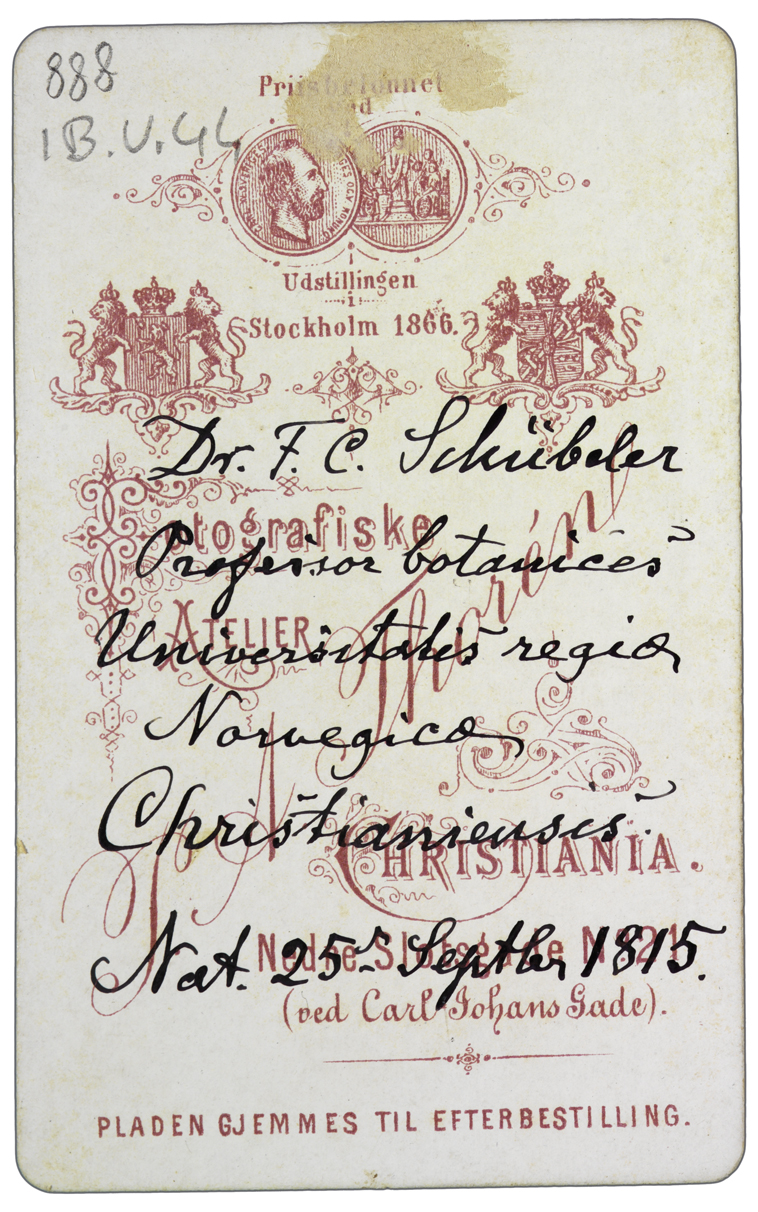 888
1B.V.44
Priisbelønnet
ved
Udstillingen
i
Stockholm 1866.
Dr. F. C. Schübeler
Fotografiske
Professor botanices
Atelier
Universitatis regiæ
Norvegicæ
Christianiensis.
CHRISTIANIA.
Nat. 25 Septbr 1815.
Nedre Slotsgade N
(ved Carl Johans Gade).
PLADEN GJEMMES TIL EFTERBESTILLING.